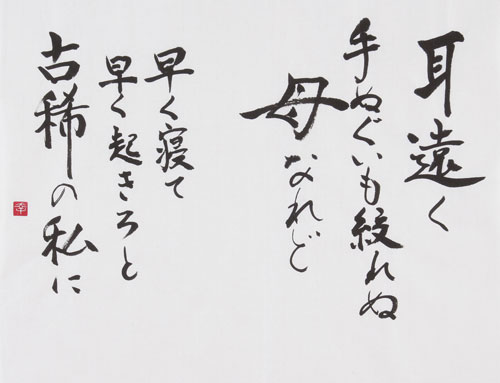 耳遠く
手ぬぐいも絞れぬ
母なれど
早く寝て
早く起きろと
古稀の私に
幸